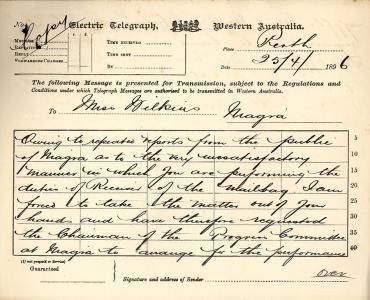 No.
Copy
Electric Telegraph,
Western Australia.
MESSAGE
EXPLANATION
REPLY
PORTERAGE CHARGES
TIME RECEIVED
TIME SENT
BY
Place Perth
Date 23/4/ 1896
The following Message is presented for Transmission, subject to the Regulations and
Conditions under which Telegraph Messages are authorised to be transmitted in Western Australia.
To Miss Wilkins
Magra
Owing to repeated reports from the public 5
of Magra as to the very unsatisfactory 10
manner in which you are performing the 15
duties of Receiver of the mailbag I am 20
forced to take the matter out of your 25
hands and have therefore requested 30
the Chairman of the Progress Committee 35
at Magra to arrange for the performance 40
(If not prepaid to Service)
Guaranteed
over
Signature and address of Sender